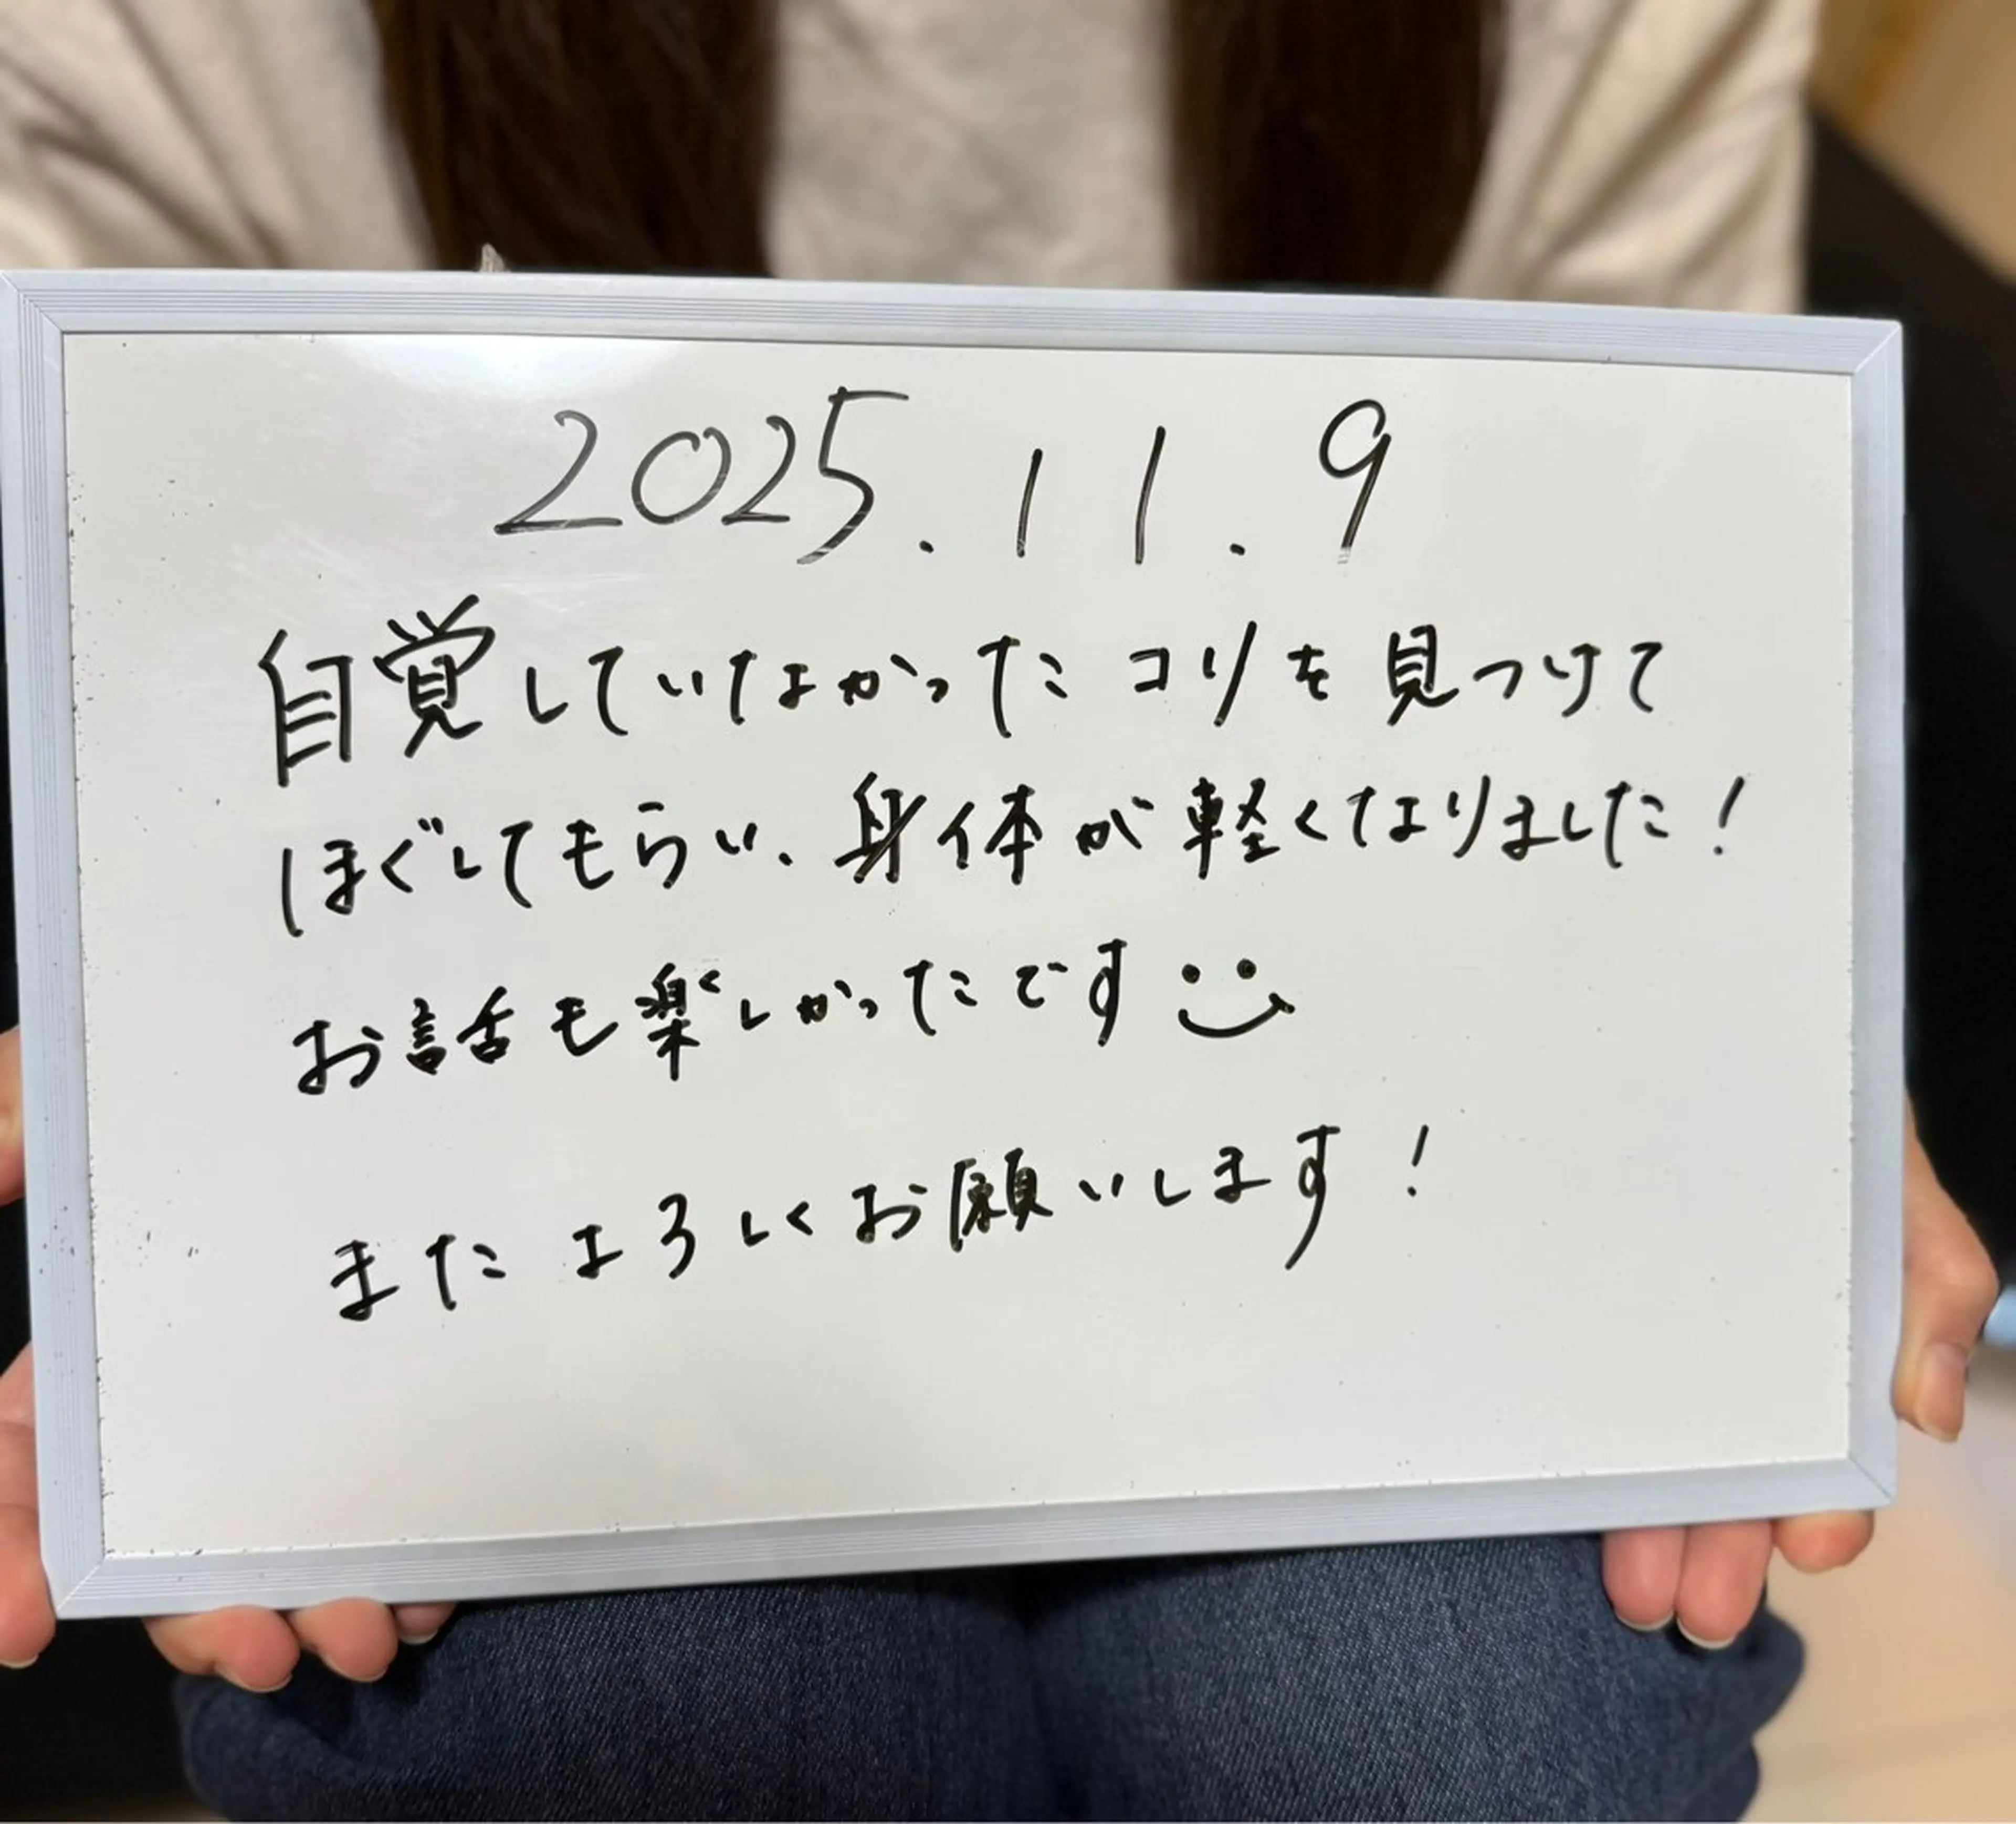 2025.11.9
自覚していなかったコリを見つけて
ほぐしてもらい、身体が軽くなりました!
お話も楽しかったです
またよろしくお願いします!